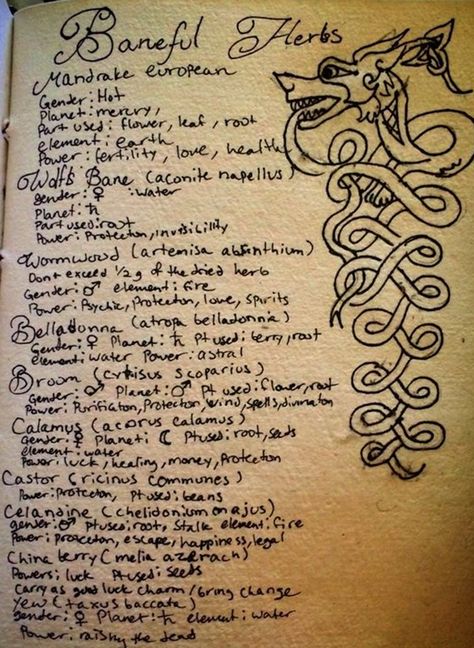 Baneful Herbs
Mandrake european
Gender: Hot
Planet: mercry,
Part used: flower, leaf, root
element: earth
Power: fertility, love, health
Wolfs Bane (aconite napellus)
gender: ♀ : water
Planet: ♄
Part used: root
Power: Protection, invisibility
Wormwood (artemisa absinthium)
Dont exceed 1/2 g of the dried herb
Gender: ♂ element: fire
Power: Psychic, Protection, love, spirits
Belladonna (atropa belladonnia)
Gender: ♀ Planet: ♄ Pt used: berry, root
element: water Power: astral
Broom (cytisus scoparius)
Gender: ♂ Planet: ♂ Pt used: flower, root
Power: Purification, Protection, wind, spells, divination
Calamus (acorus calamus)
Gender: ♀ Planet: ☾ Pt used: root, seeds
element: water
Power: luck, healing, money, Protection
Castor (ricinus communes)
Power: Protection, Pt used: beans
Celandine (chelidonium majus)
gender: ♂ Pt used: root, stalk element: fire
Power: protection, escape, happiness, legal
China berry (melia azerach)
Powers: luck Pt used: seeds
Carry as good luck charm/bring change
Yew (taxus baccata)
gender: ♀ Planet: ♄ element: water
Power: raising the dead